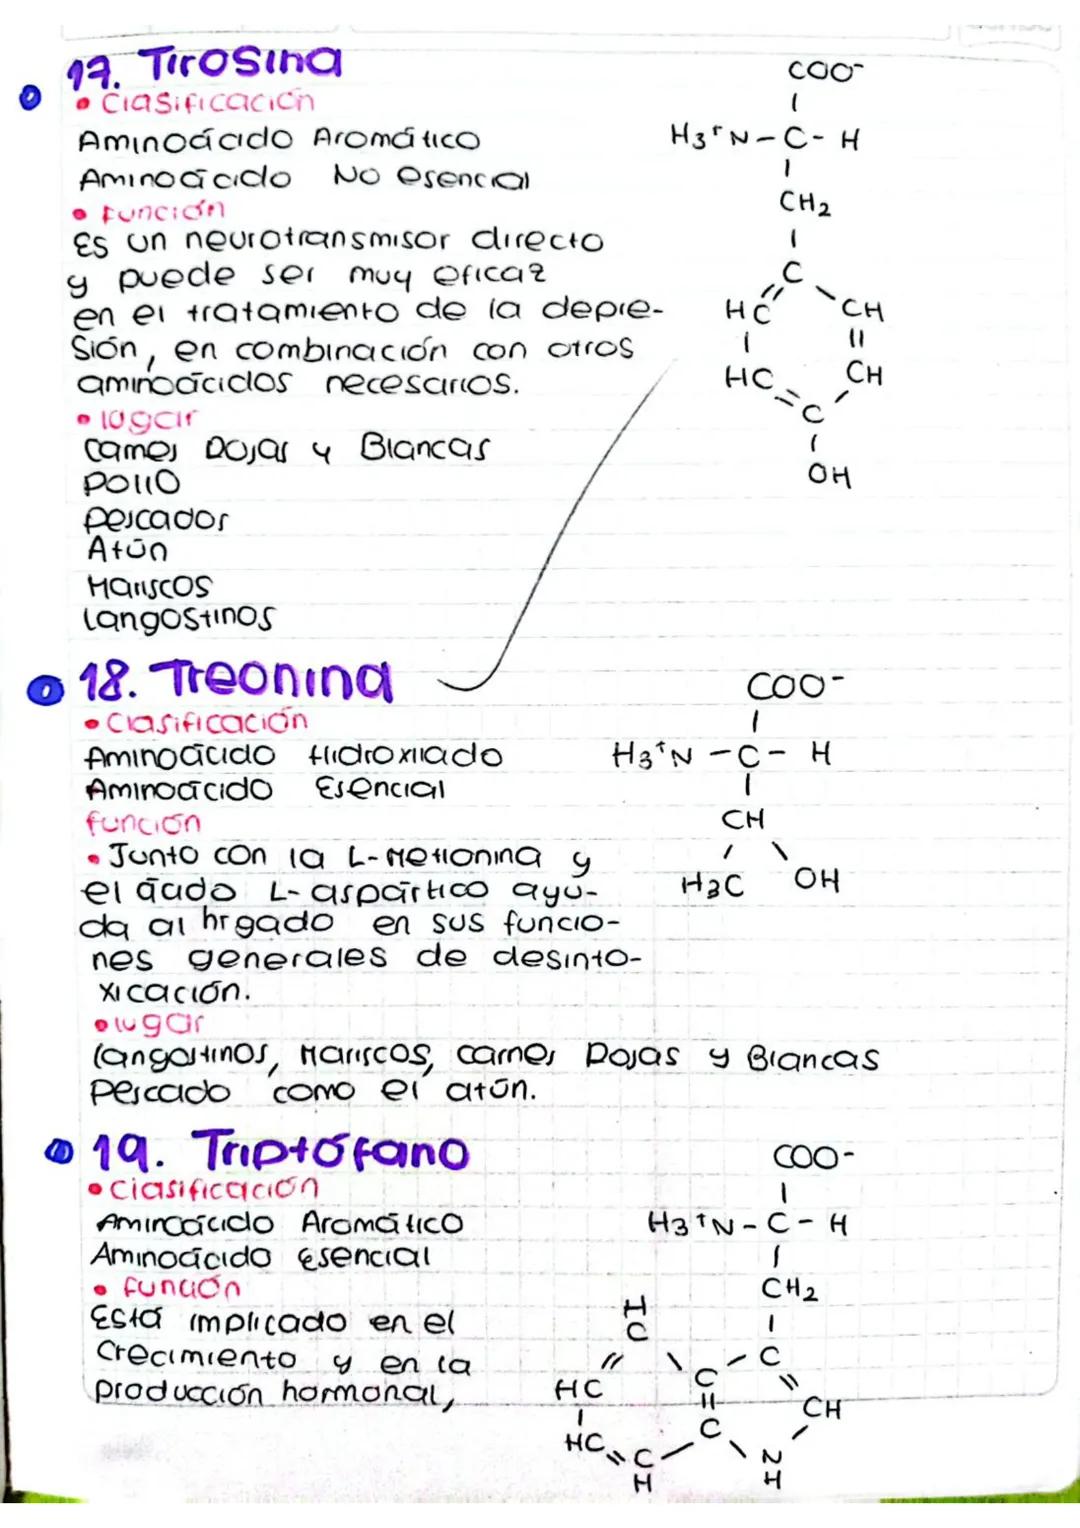 17. Tirosina
• Clasificación
Aminoácido Aromático
Aminoácido No esencial
• función
Es un neurotransmisor directo
y puede ser muy eficaz
en el tratamiento de la depre-
sión, en combinación con otros
aminoácidos necesarios.
• lugar
Carnes Rojas y Blancas
Pollo
Pescados
Atún
Mariscos
Langostinos
COO-
H3+N-C-H
CH2
C
HC CH
HC CH
C
OH
18. Treonina
• Clasificación
Aminoácido Hidroxilado
Aminoácido Esencial
función
• Junto con la L-Metionina y
el ácido L-aspártico ayu-
da al hígado en sus funcio-
nes generales de desinto-
xicación.
• lugar
Langostinos, Mariscos, carnes Rojas y Blancas
Pescado como el atún.
COO-
H3+N-C-H
CH
H3C OH
19. Triptófano
• Clasificación
Aminoácido Aromático
Aminoácido esencial
• función
Está implicado en el
crecimiento y en la
producción hormonal,
COO-
H3+N-C-H
CH2
HC C C
HC CH
C
HC CH NH